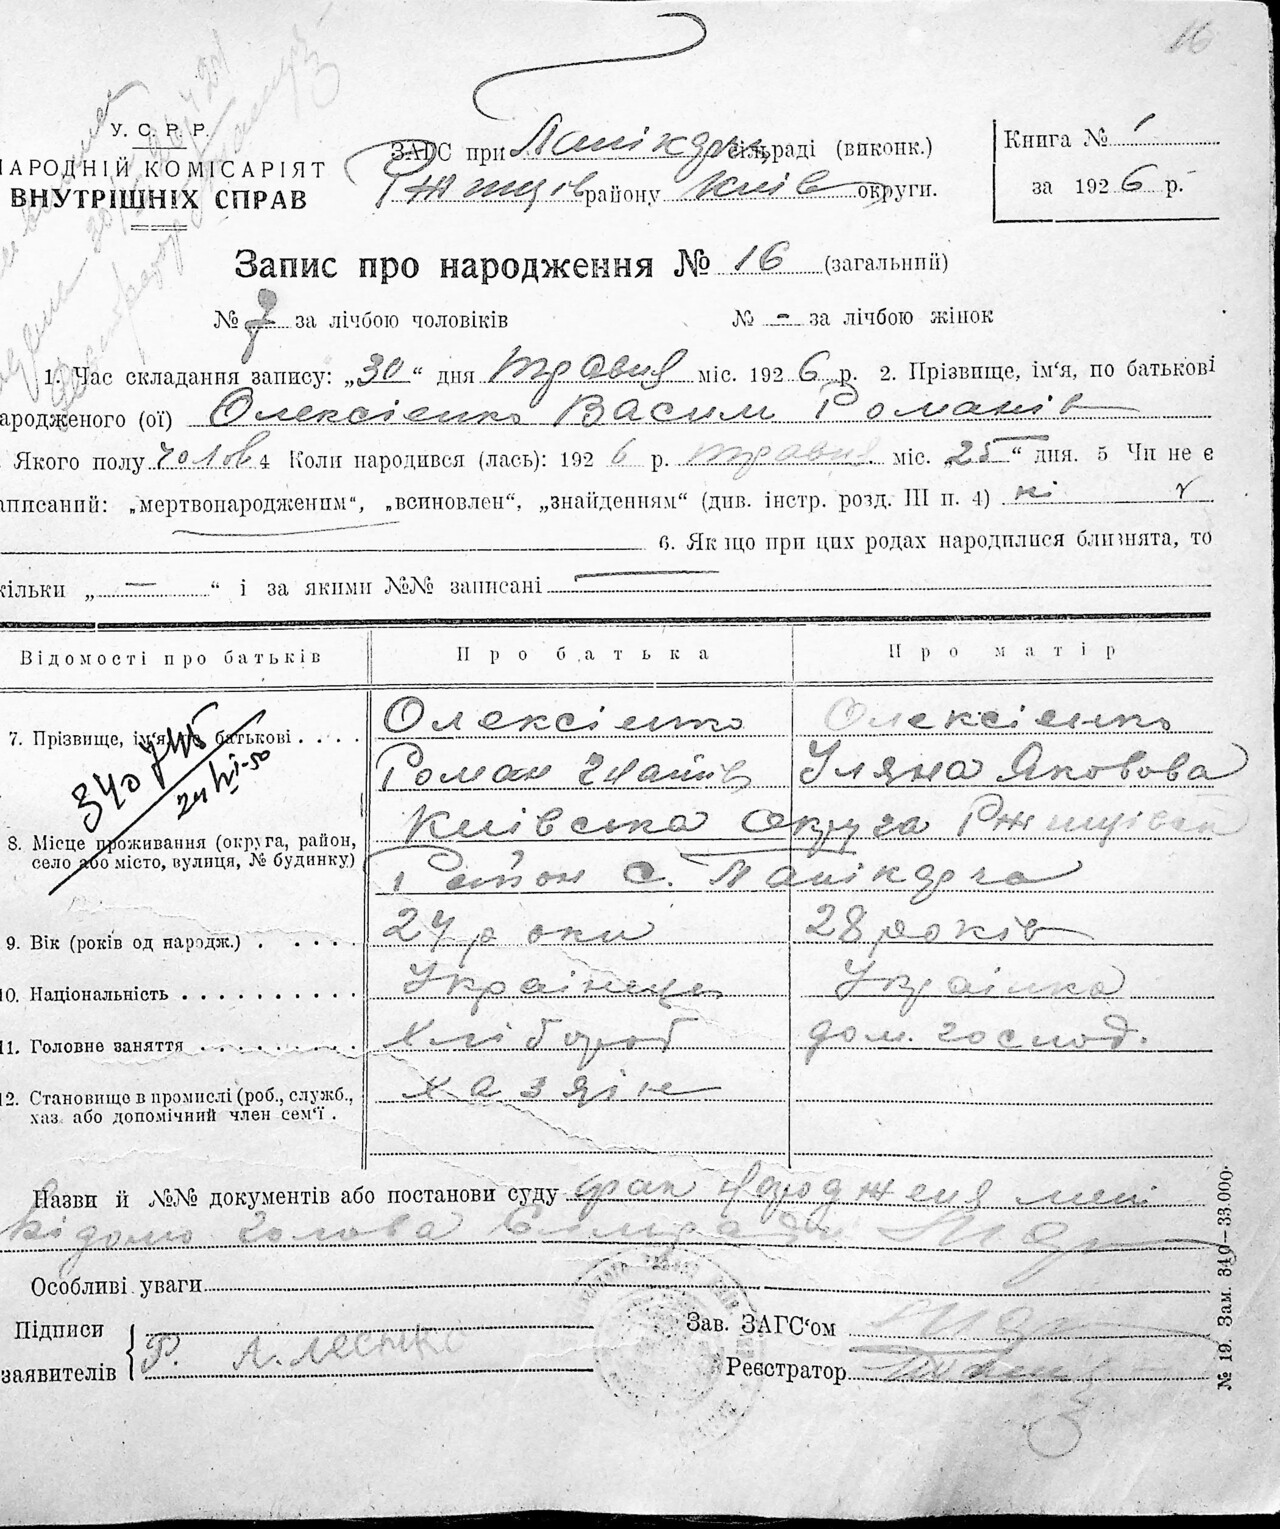 16
У. С. Р. Р.
НАРОДНІЙ КОМІСАРІЯТ
ВНУТРІШНІХ СПРАВ
ЗАГС при сільраді (виконк.)
Ржищів району Київ округи.
Книга № 1
за 1926 р.
Запис про народження № 16 (загальний)
№ 7 за лічбою чоловіків № - за лічбою жінок
1. Час складання запису: „30“ дня травня міс. 1926 р. 2. Прізвище, ім'я, по батькові
ародженого (ої) Олексієнко Василь Романів
. Якого полу чолов 4 Коли народився (лась): 1926 р. травня міс. 25“ дня. 5 Чи не є
аписаний: „мертвонародженим“, „всиновлен“, „знайденням“ (див. інстр. розд. III п. 4) ні
6. Якщо при цих родах народилися близнята, то
кільки „ — “ і за якими №№ записані —
Відомості про батьків Про батька Про матір
7. Прізвище, ім'я, по батькові . . . . Олексієнко Олексієнко
Роман Уляна Яковова
340745
24/XI-50
8. Місце проживання (округа, район, село або місто, вулиця, № будинку) Київська округа Ржищівськ
Район с.
9. Вік (років од народж.) . . . . . 24 роки 28 років
10. Національність . . . . . . . . . . Українець Українка
11. Головне заняття . . . . . . . . . Хлібороб дом. господ.
12. Становище в промислі (роб., служб., хаз. або допомічний член сем'ї . хазяін
Назви й №№ документів або постанови суду фак народження мені
відомо голова Сільради
Особливі уваги
Підписи
заявителів
Р.
Зав. ЗАГС'ом
Реєстратор
№ 19. Зам. 340—33.000.